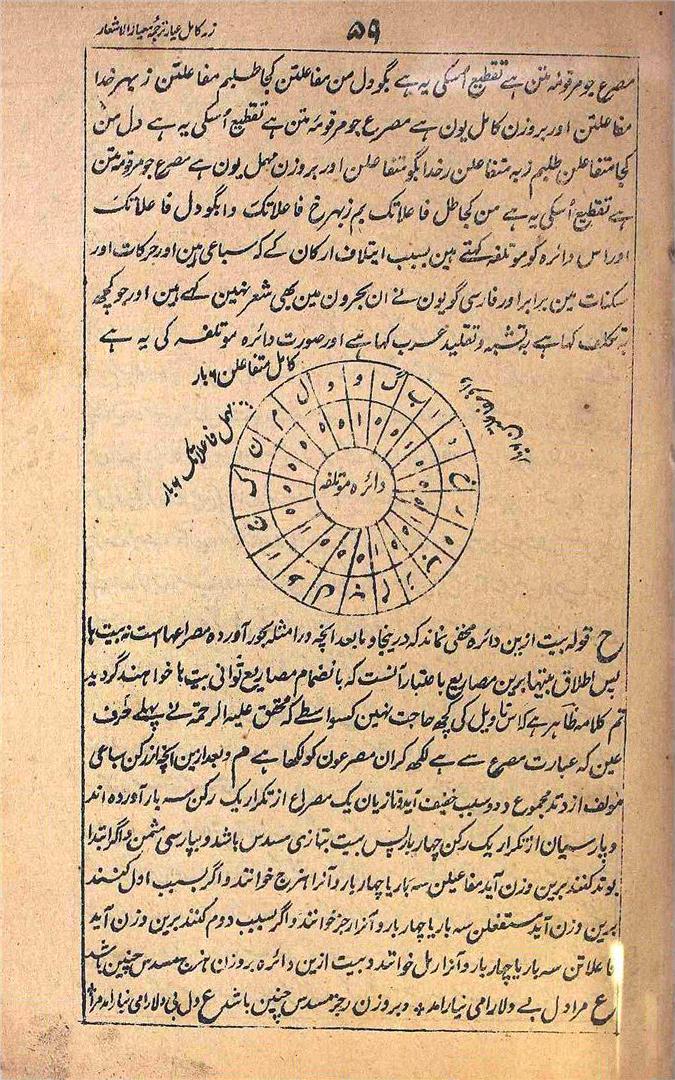 ۵۹
زر کامل عیار ترجمۂ معیار الاشعار
مصرع جو مرقومۂ متن ہے تقطیع اُسکی یہ ہے بگو دل من مفاعلتن کجا طلبم مفاعلتن ز بہر خدا
مفاعلتن اور بر وزن کامل یون ہے مصرع جو مرقومۂ متن ہے تقطیع اُسکی یہ ہے دل من
کجا متفاعلن طلبم ز بہ متفاعلن ر خدا بگو متفاعلن اور بر وزن مہمل یون ہے مصرع جو مرقومۂ متن
ہے تقطیع اُسکی یہ ہے من کجا طل فاعلاتک بم ز بہر خ فاعلاتک دا بگو دل فاعلاتک
اور اس دائرہ کو موتلفہ کہتے ہین بسبب ایتلاف ارکان کے کہ سباعی ہین اور حرکات اور
سکنات مین برابر اور فارسی گویون نے ان بحرون مین بھی شعر نہین کہے ہین اور جو کچھ
بہ تکلف کہا ہے بہ تشبہ و تقلید عرب کہا ہے اور صورت دائرہ موتلفہ کی یہ ہے
کامل متفاعلن ۶ بار
مہمل فاعلاتک ۶ بار
دائرہ موتلفہ
ح قولہ بیت ازین دائرہ مخفی نماند کہ درینجا و ما بعد آنچہ در امثلہ بحور آوردہ مصراعہاست نہ بیت ہا
پس اطلاق بیتہا برین مصاریع باعتبار آنست کہ بانضمام مصاریع ثوانی بیت ہا خواہند گردید
تم کلامہ ظاہر ہے کہ اس تاویل کی کچھ حاجت نہین کسواسطے کہ محقق علیہ الرحمۃ نے پہلے حرف
عین کہ عبارت مصرع سے ہے لکھ کر ان مصرعون کو لکھا ہے م و بعد ازین آنچہ از رکن سباعی
مولف از وتد مجموع و دو سبب خفیف آید و تازیان یک مصراع از تکرار یک رکن سہ بار آوردہ اند
و پارسیان از تکرار یک رکن چہار بار پس بیت بتازی مسدس باشد و بپارسی مثمن و اگر ابتدا
بوتد کنند برین وزن آید مفاعیلن سہ بار یا چہار بار و آنرا ہزج خوانند و اگر بسبب اول کنند
برین وزن آید مستفعلن سہ بار یا چہار بار و آنرا رجز خوانند و اگر بسبب دوم کنند برین وزن آید
فاعلاتن سہ بار یا چہار بار و آنرا رمل خوانند و بیت ازین دائرہ بروزن ہزج مسدس چنین باشد
ع مرا دل بے دلارامی نیارامد ٭ و بر وزن رجز مسدس چنین باشد ع دل بی دلارامی نیارامد مرا